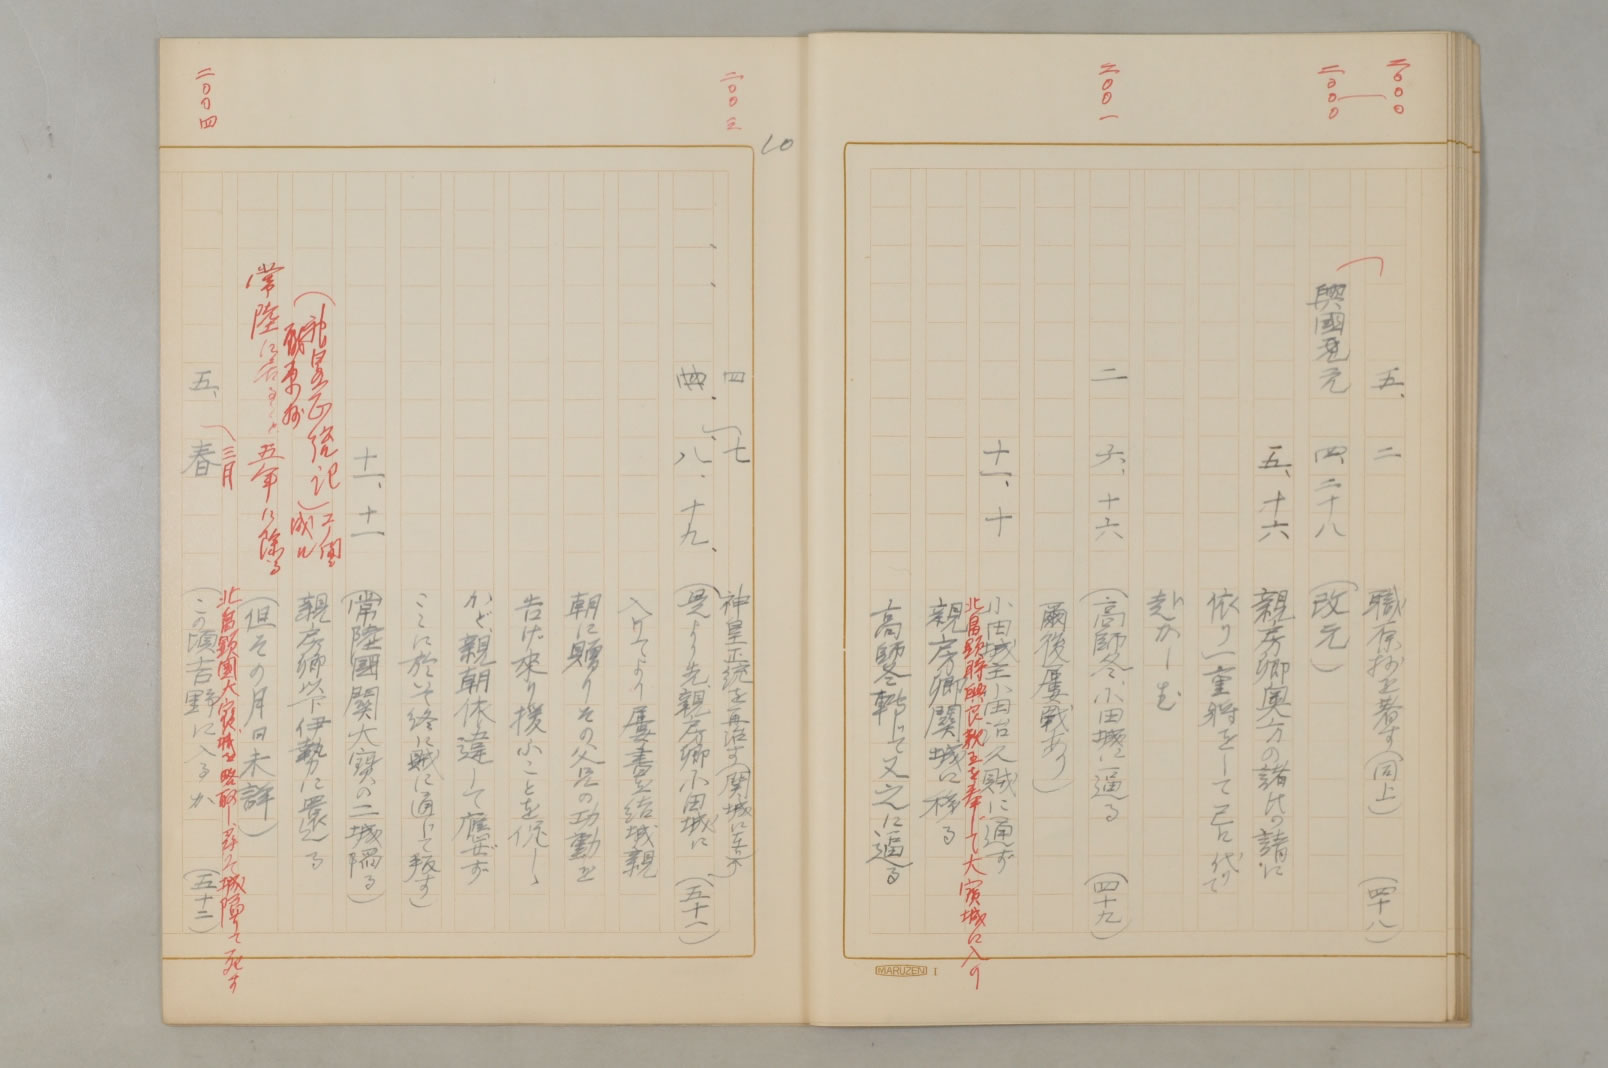 二〇〇〇
五、 二 職原抄を著す(同上) (四十八)
二〇〇〇
興國元 四、二十八 (改元)
五、十六 親房卿奥方の諸氏の請に
依り一重将をして己に代て
赴かしむ
二〇〇一
二 六、十六 (高師冬、小田城に逼る (四十九)
爾後屢戰あり)
十一、十 小田城主小田治久賊に通ず
北畠顕時興良親王を奉じて大寳城に入り
親房卿關城に移る
高師冬轉じて又之に逼る
MARUZEN I
10
二〇〇三
四 七 神皇正統を再治す(関城に在天)
八、十九、 (是より先親房卿小田城に (五十一)
入りてより屢書を結城親
朝に贈りその父兄の功勳を
告げ來り援ふことを促しゝ
かど、親朝依違して應ぜず
ここに於いて終に賊に通じて叛す)
十一、十一 (常陸國關大寳の二城陥る)
(神皇正統記)
親房卿以下伊勢に還る
常陸に居ること五年に除る
(但その月日未詳)
三月 北畠顕國大寳城を略取し、尋で城陥りて死す
二〇〇四
五、 春 (この頃吉野に入るか (五十二)